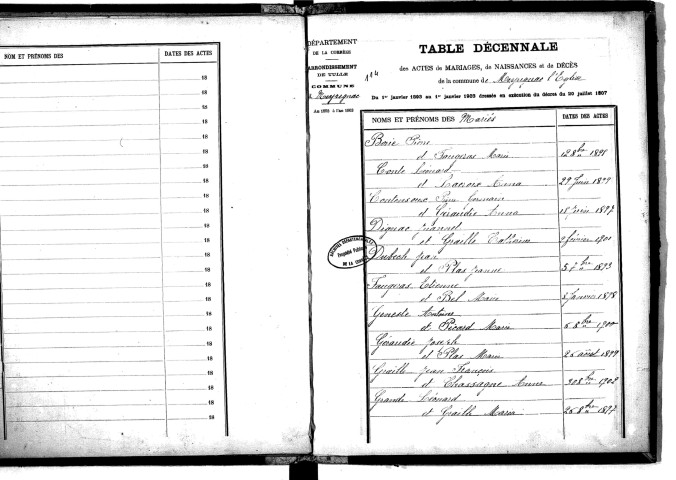 NOM ET PRÉNOMS DES DATES DES ACTES
18
18
18
18
18
18
18
18
18
18
18
18
18
18
18
18
18
18
18
18
18
18
18
18
DÉPARTEMENT
DE LA CORRÈZE
ARRONDISSEMENT
DE TULLE
COMMUNE
de Meyrignac
An 1893 à l'an 1903
114
TABLE DÉCENNALE
des ACTES de MARIAGES, de NAISSANCES et de DÉCÈS
de la commune de Meyrignac l'Eglise
Du 1er janvier 1893 au 1er janvier 1903 dressée en exécution du décret du 20 juillet 1807
NOMS ET PRÉNOMS DES Mariés DATES DES ACTES
Pierre
et Faugeras Marie 12 8bre 1898
Léonard
et Anna 29 Juin 1899
et Giraudie Anna 1897
Dignac
et Graille 9 février 1901
Dubech Jean
et Plas Jeanne 1893
Faugeras Etienne
et Bel Marie Janvier 1898
Geneste Antoine
et Picard Marie 8bre 1900
Giraudie Joseph
et Plas Marie 26 août 1899
Graille Jean François
et Chassagne Anne 1902
Grande Léonard
et Graille Maria 26 8bre 1897
ARCHIVES DÉPARTEMENTALES
Propriété Publique
DE LA CORRÈZE